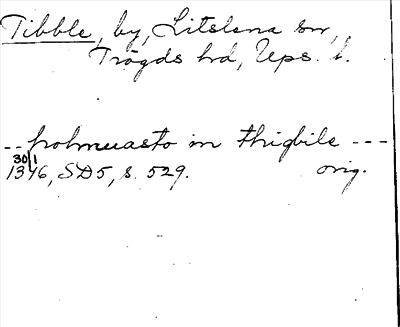 Tibble, by, Litslena sn,
Trögds hd, Ups. l.
-- holmuasto in thigbile ---
30/1
1346, SD5, s. 529. orig.